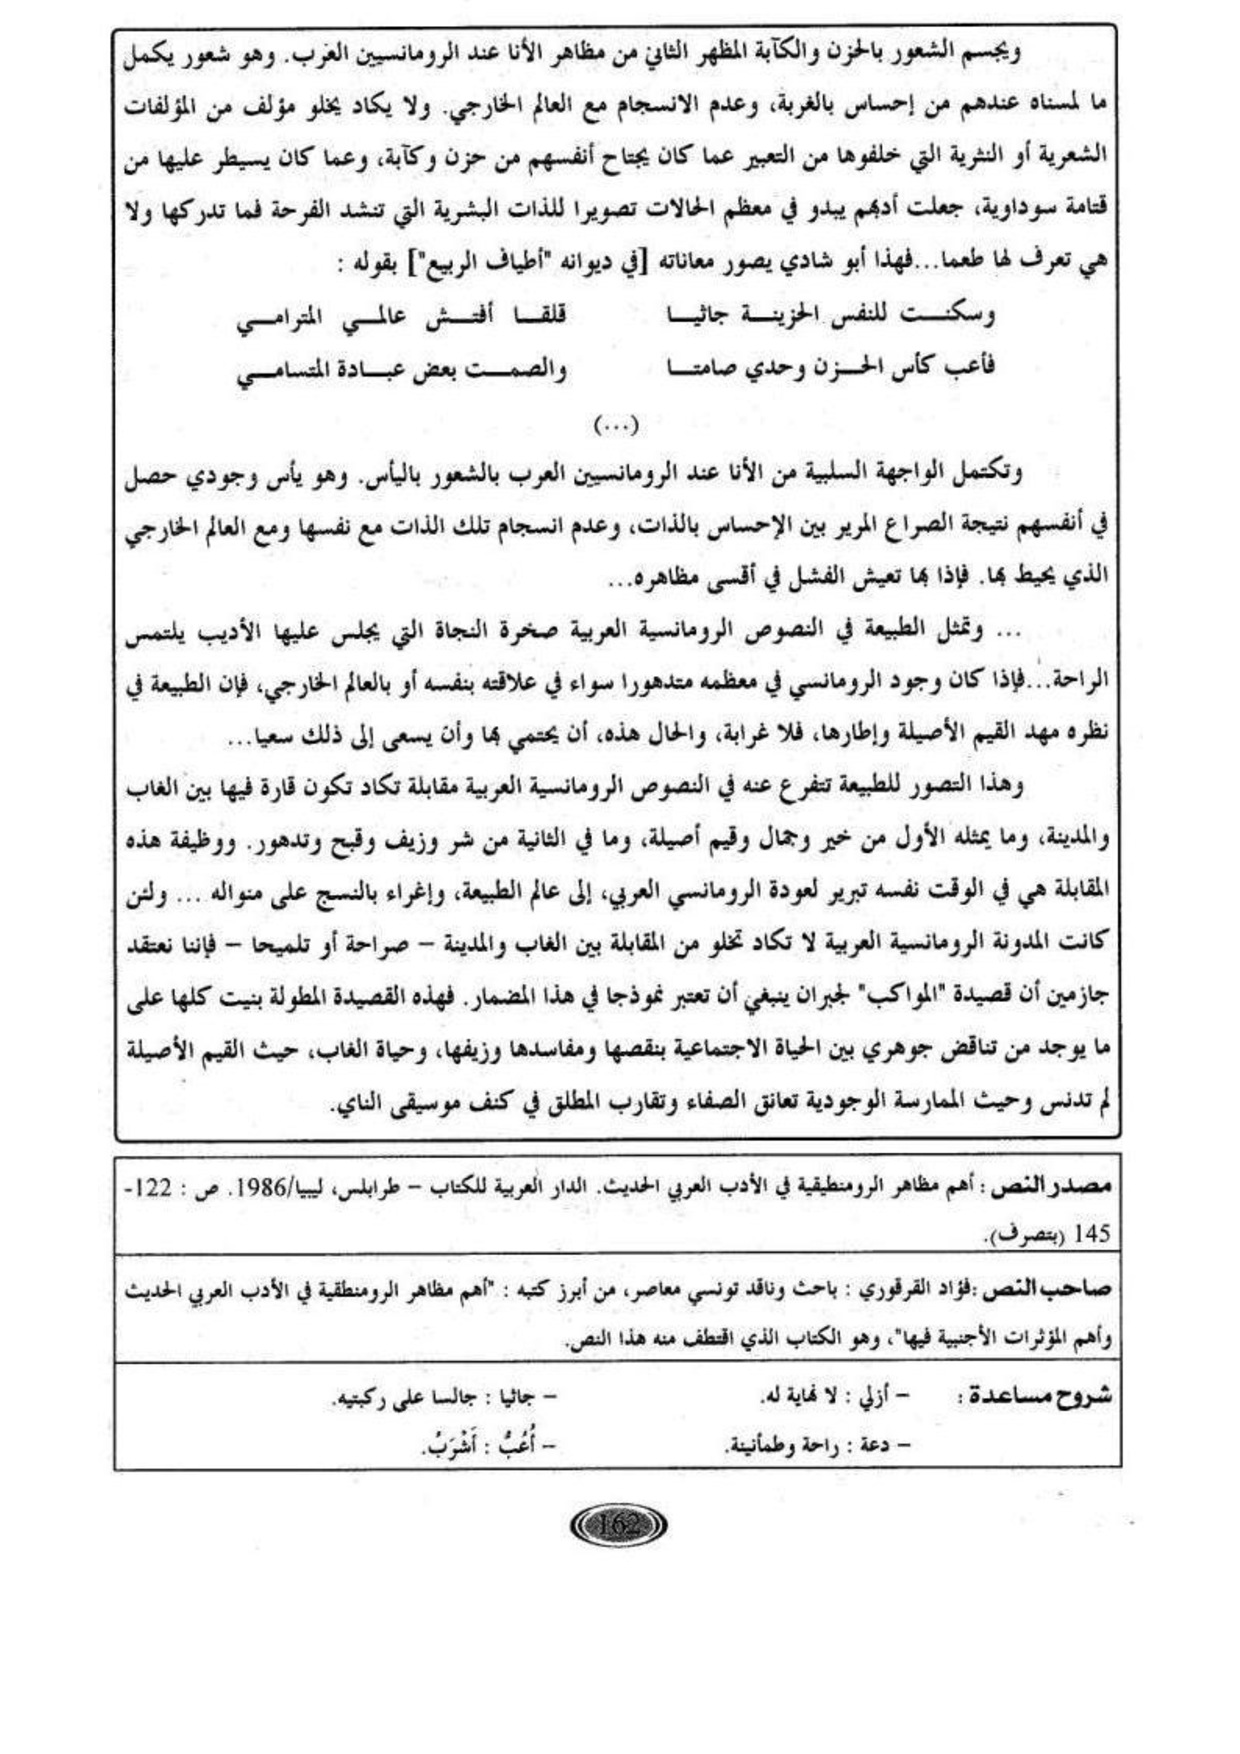 ويجسم الشعور بالحزن والكآبة المظهر الثاني من مظاهر الأنا عند الرومانسيين العرب. وهو شعور يكمل
ما لمسناه عندهم من إحساس بالغربة، وعدم الانسجام مع العالم الخارجي. ولا يكاد يخلو مؤلف من المؤلفات
الشعرية أو النثرية التي خلفوها من التعبير عما كان يجتاح أنفسهم من حزن وكآبة، وعما كان يسيطر عليها من
قتامة سوداوية، جعلت أدبهم يبدو في معظم الحالات تصويرا للذات البشرية التي تنشد الفرحة فما تدركها ولا
هي تعرف لها طعما...فهذا أبو شادي يصور معاناته [في ديوانه "أطياف الربيع"] بقوله :
وسكنـــت للنفس الحزينـــة جاثيـــا قلقـــا أفتـــش عالمـــي المترامـــي
فأعب كأس الحـــزن وحدي صامتـــا والصمـــت بعض عبـــادة المتسامـــي
(...)
وتكتمل الواجهة السلبية من الأنا عند الرومانسيين العرب بالشعور باليأس. وهو يأس وجودي حصل
في أنفسهم نتيجة الصراع المرير بين الإحساس بالذات، وعدم انسجام تلك الذات مع نفسها ومع العالم الخارجي
الذي يحيط بها. فإذا بها تعيش الفشل في أقسى مظاهره...
... وتمثل الطبيعة في النصوص الرومانسية العربية صخرة النجاة التي يجلس عليها الأديب يلتمس
الراحة...فإذا كان وجود الرومانسي في معظمه متدهورا سواء في علاقته بنفسه أو بالعالم الخارجي، فإن الطبيعة في
نظره مهد القيم الأصيلة وإطارها، فلا غرابة، والحال هذه، أن يحتمي بها وأن يسعى إلى ذلك سعيا...
وهذا التصور للطبيعة تتفرع عنه في النصوص الرومانسية العربية مقابلة تكاد تكون قارة فيها بين الغاب
والمدينة، وما يمثله الأول من خير وجمال وقيم أصيلة، وما في الثانية من شر وزيف وقبح وتدهور. ووظيفة هذه
المقابلة هي في الوقت نفسه تبرير لعودة الرومانسي العربي، إلى عالم الطبيعة، وإغراء بالنسج على منواله ... ولئن
كانت المدونة الرومانسية العربية لا تكاد تخلو من المقابلة بين الغاب والمدينة – صراحة أو تلميحا – فإننا نعتقد
جازمين أن قصيدة "المواكب" لجبران ينبغي أن تعتبر نموذجا في هذا المضمار. فهذه القصيدة المطولة بنيت كلها على
ما يوجد من تناقض جوهري بين الحياة الاجتماعية بنقصها ومفاسدها وزيفها، وحياة الغاب، حيث القيم الأصيلة
لم تدنس وحيث الممارسة الوجودية تعانق الصفاء وتقارب المطلق في كنف موسيقى الناي.
مصدر النص : أهم مظاهر الرومنطيقية في الأدب العربي الحديث. الدار العربية للكتاب – طرابلس، ليبيا/1986. ص : 122-
145 (بتصرف).
صاحب النص :فؤاد القرقوري : باحث وناقد تونسي معاصر، من أبرز كتبه : "أهم مظاهر الرومنطقية في الأدب العربي الحديث
وأهم المؤثرات الأجنبية فيها"، وهو الكتاب الذي اقتطف منه هذا النص.
شروح مساعدة : – أزلي : لا نهاية له. – جاثيا : جالسا على ركبتيه.
– دعة : راحة وطمأنينة. – أَعُبُّ : أَشْرَبُ.
162